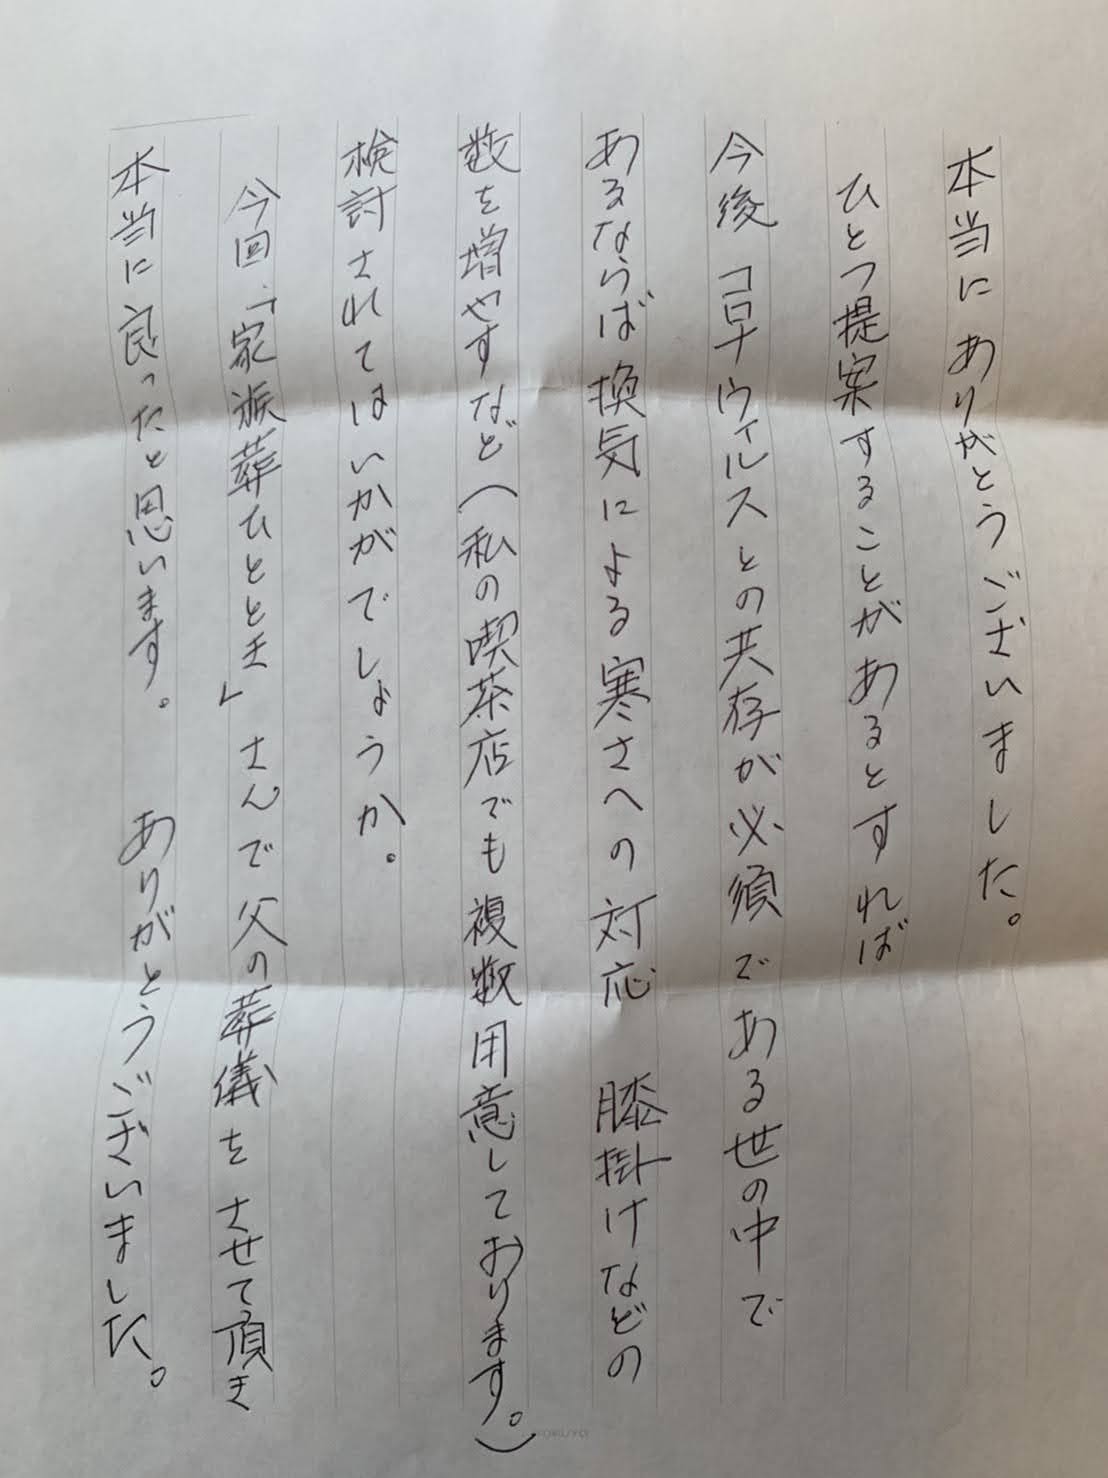 本当に ありがとうございました。
ひとつ提案することがあるとすれば
今後 コロナウィルスとの共存が必須である世の中で
あるならば換気による寒さへの対応 膝掛けなどの
数を増やすなど(私の喫茶店でも複数用意しております。)
検討されてはいかがでしょうか。
今回、「家族葬ひととき」さんで父の葬儀をさせて頂き
本当に良ったと思います。 ありがとうございました。
KOKUYO